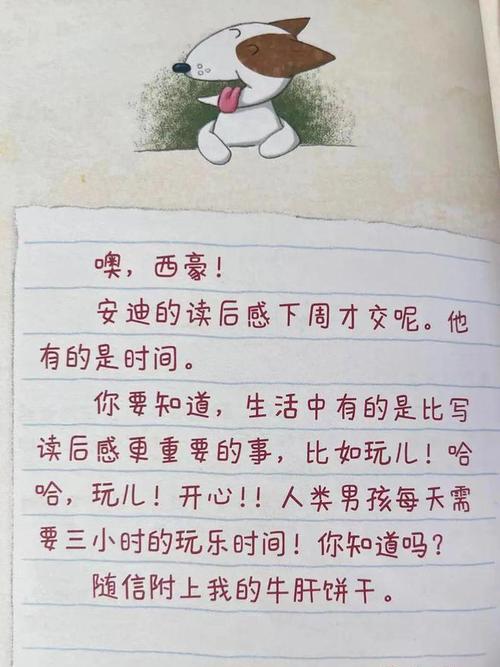 噢，西豪！
安迪的读后感下周才交呢。他
有的是时间。
你要知道，生活中有的是比写
读后感更重要的事，比如玩儿！哈
哈，玩儿！开心！！人类男孩每天需
要三小时的玩乐时间！你知道吗？
随信附上我的牛肝饼干。